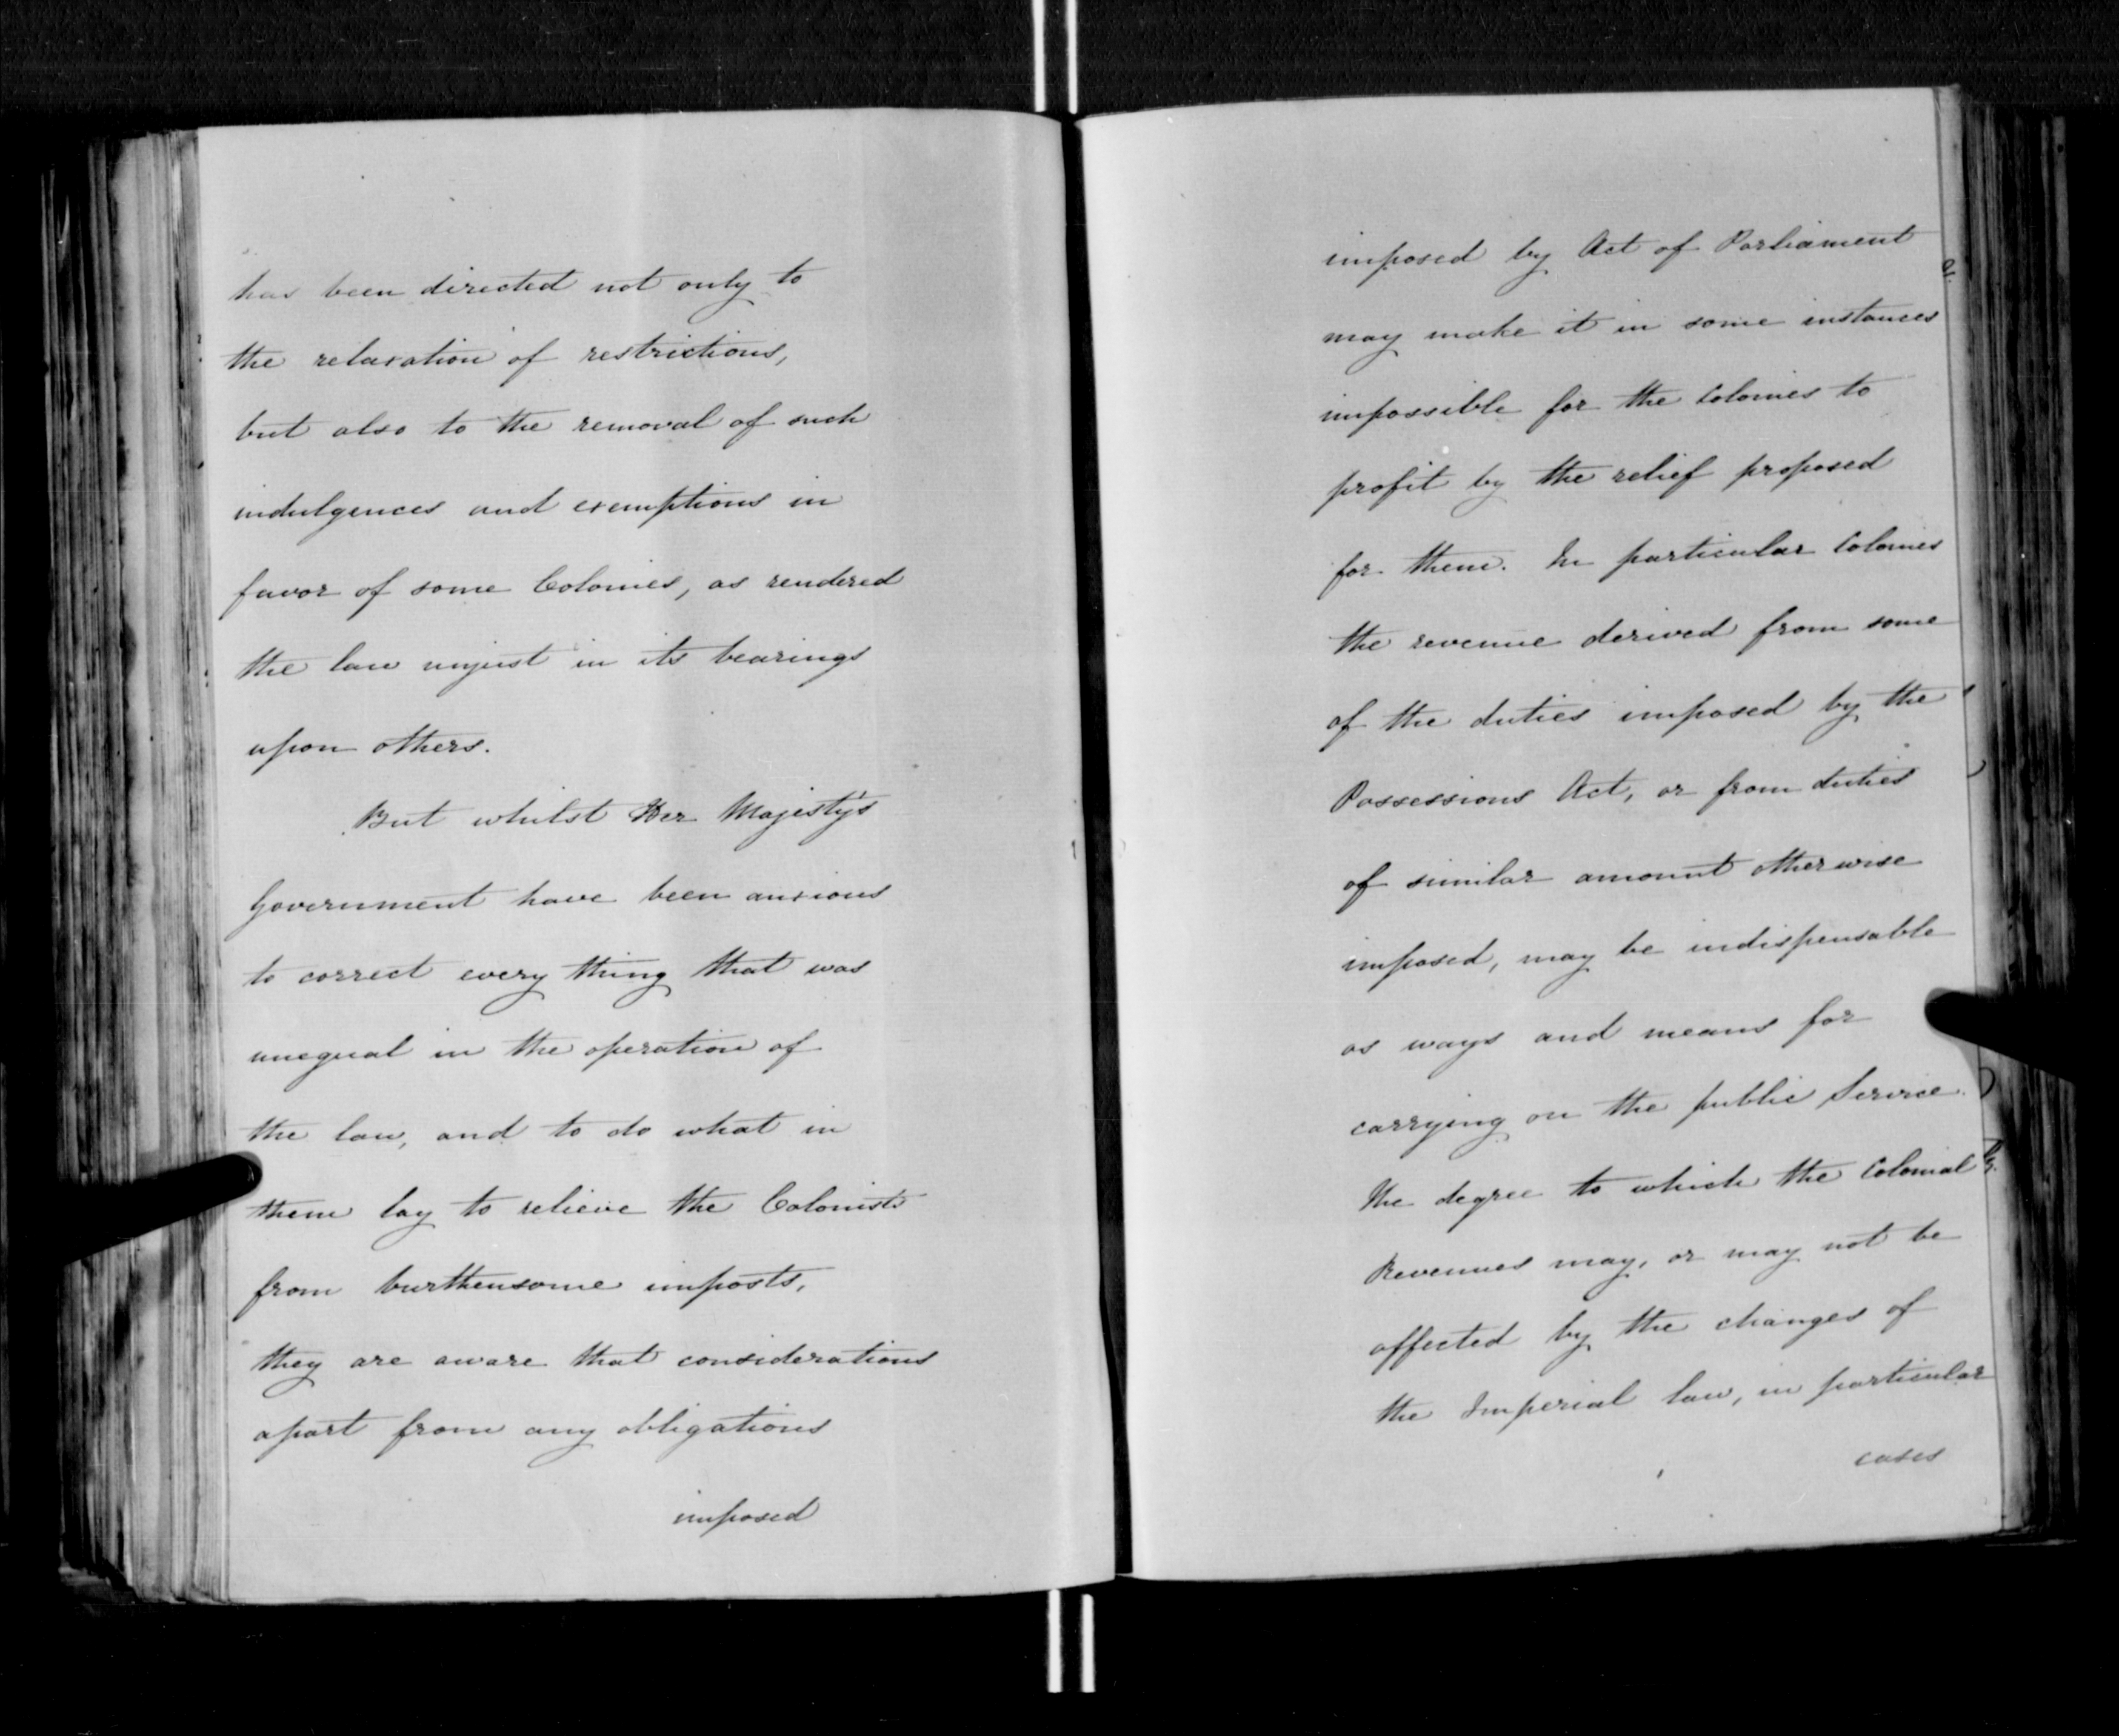 has been directed not only to
the relaxation of restrictions,
but also to the removal of such
indulgences and exemptions in
favor of some Colonies, as rendered
the law unjust in its bearings
upon others.
But whilst Her Majesty's
Government have been anxious
to correct every thing that was
unequal in the operation of
the law, and to do what in
them lay to relieve the Colonists
from burthensome imposts,
they are aware that considerations
apart from any obligations
imposed
imposed by Act of Parliament
may make it in some instances
impossible for the Colonies to
profit by the relief proposed
for them. In particular Colonies
the revenue derived from some
of the duties imposed by the
Possessions Act, or from duties
of similar amount otherwise
imposed, may be indispensable
as ways and means for
carrying on the public Service.
The degree to which the Colonial
Revenues may, or may not be
affected by the changes of
the Imperial law, in particular
cases